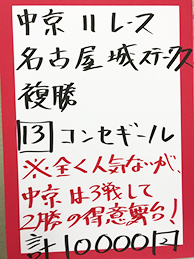 中京11レース
名古屋城ステークス
複勝
13 コンセギール
※全く人気ないが、
中京は3戦して
2勝の得意舞台!
計10000円